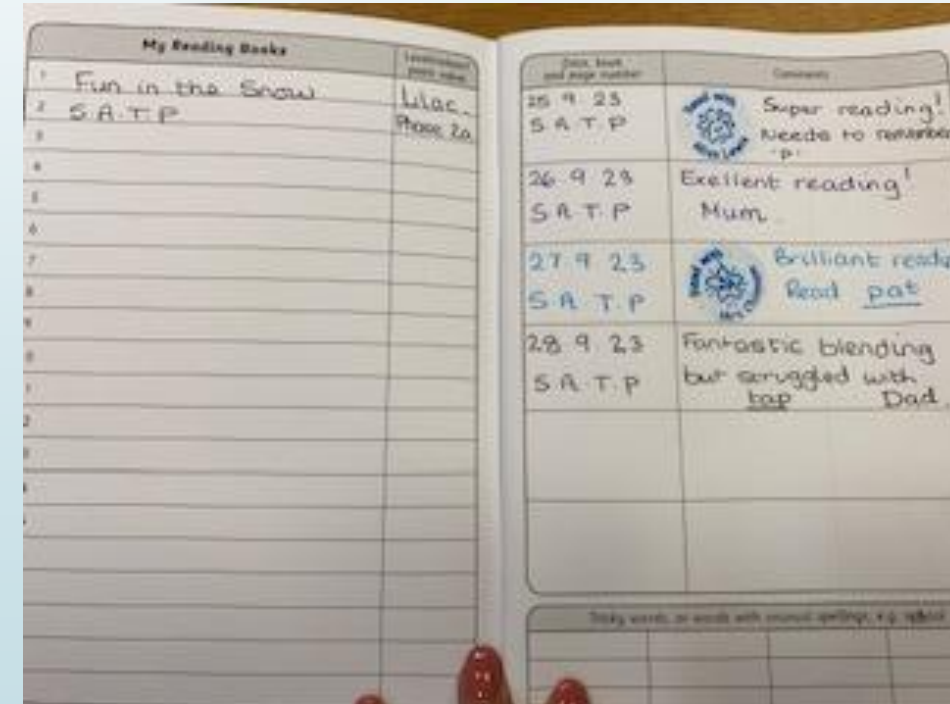 My Reading Books
1 Fun in the Snow Lilac
2 S.A.T.P Phase 2a
3
4
5
6
7
8
9
Date, book
and page number
Comments
25 9 23
S A T P
Read with
Miss
Super reading!
Needs to remember
'p'
26 9 23
S A T P
Exellent reading!
Mum
27 9 23
S A T. P
Read with
Mrs
Brilliant readi
Read pat
28 9 23
S A. T. P
Fantastic blending
but struggled with
tap Dad.
Tricky words, or words with unusual spellings, e.g.